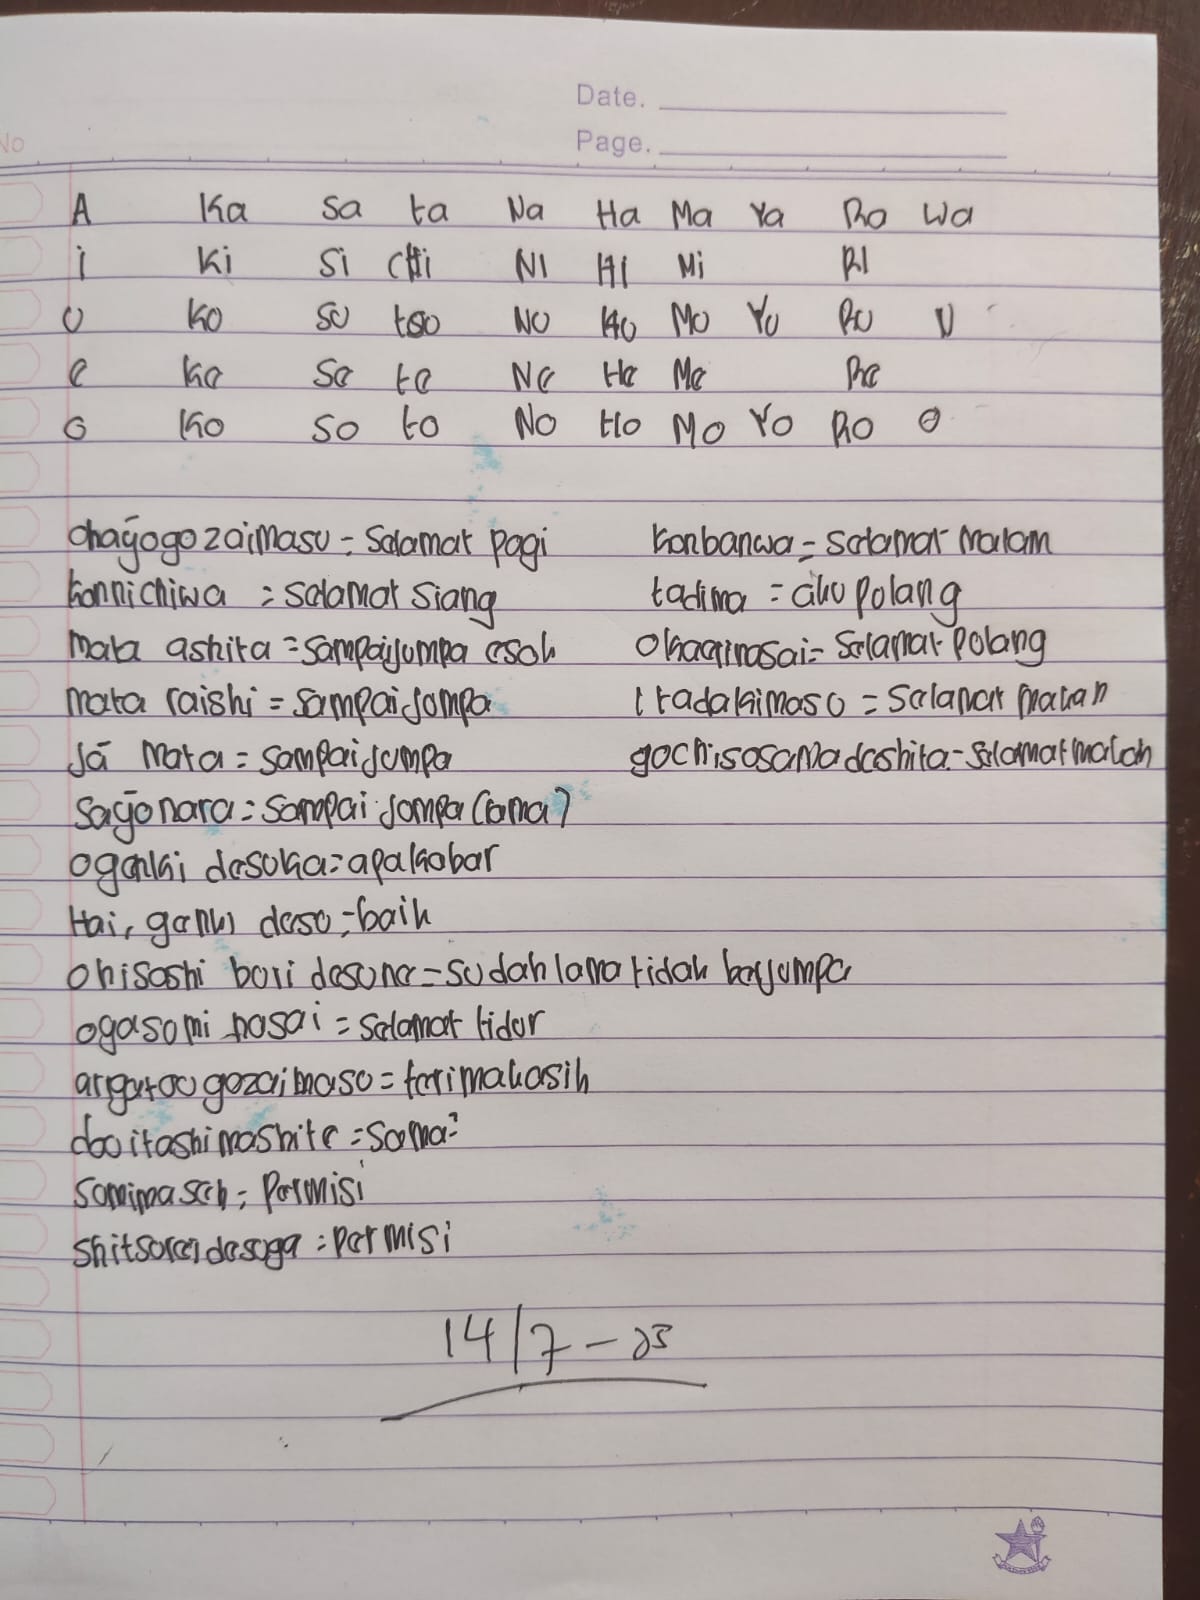 No
Date.
Page.
A Ka Sa ta Na Ha Ma Ya Ra Wa
i Ki Si CHi Ni Hi Mi Ri
U Ko SU tso NU HU MU YU RU U
e Ke Se te Ne He Me Re
O Ko So to No Ho Mo Yo Ro O
Ohayogozaimasu = Selamat pagi
konnichiwa = Selamat siang
Mata ashita = Sampaijumpa esok
Mata raishi = Sampai jumpa
Jā Mata = Sampai jumpa
Sayonara = Sampai jumpa (lama)
Ogenki desuka = apa kabar
Hai, genki deso = baik
Ohisashi buri desune = sudah lama tidak berjumpa
Ogasomi nasai = Selamat tidur
arigatoo gozaimaso = terimakasih
doo itashimashite = sama²
Permisi
= Permisi
konbanwa = Selamat Malam
tadima = aku polang
= Selamat Polang
itadakimaso = Selamat makan
gochisosamadeshita =
14/7 - 23